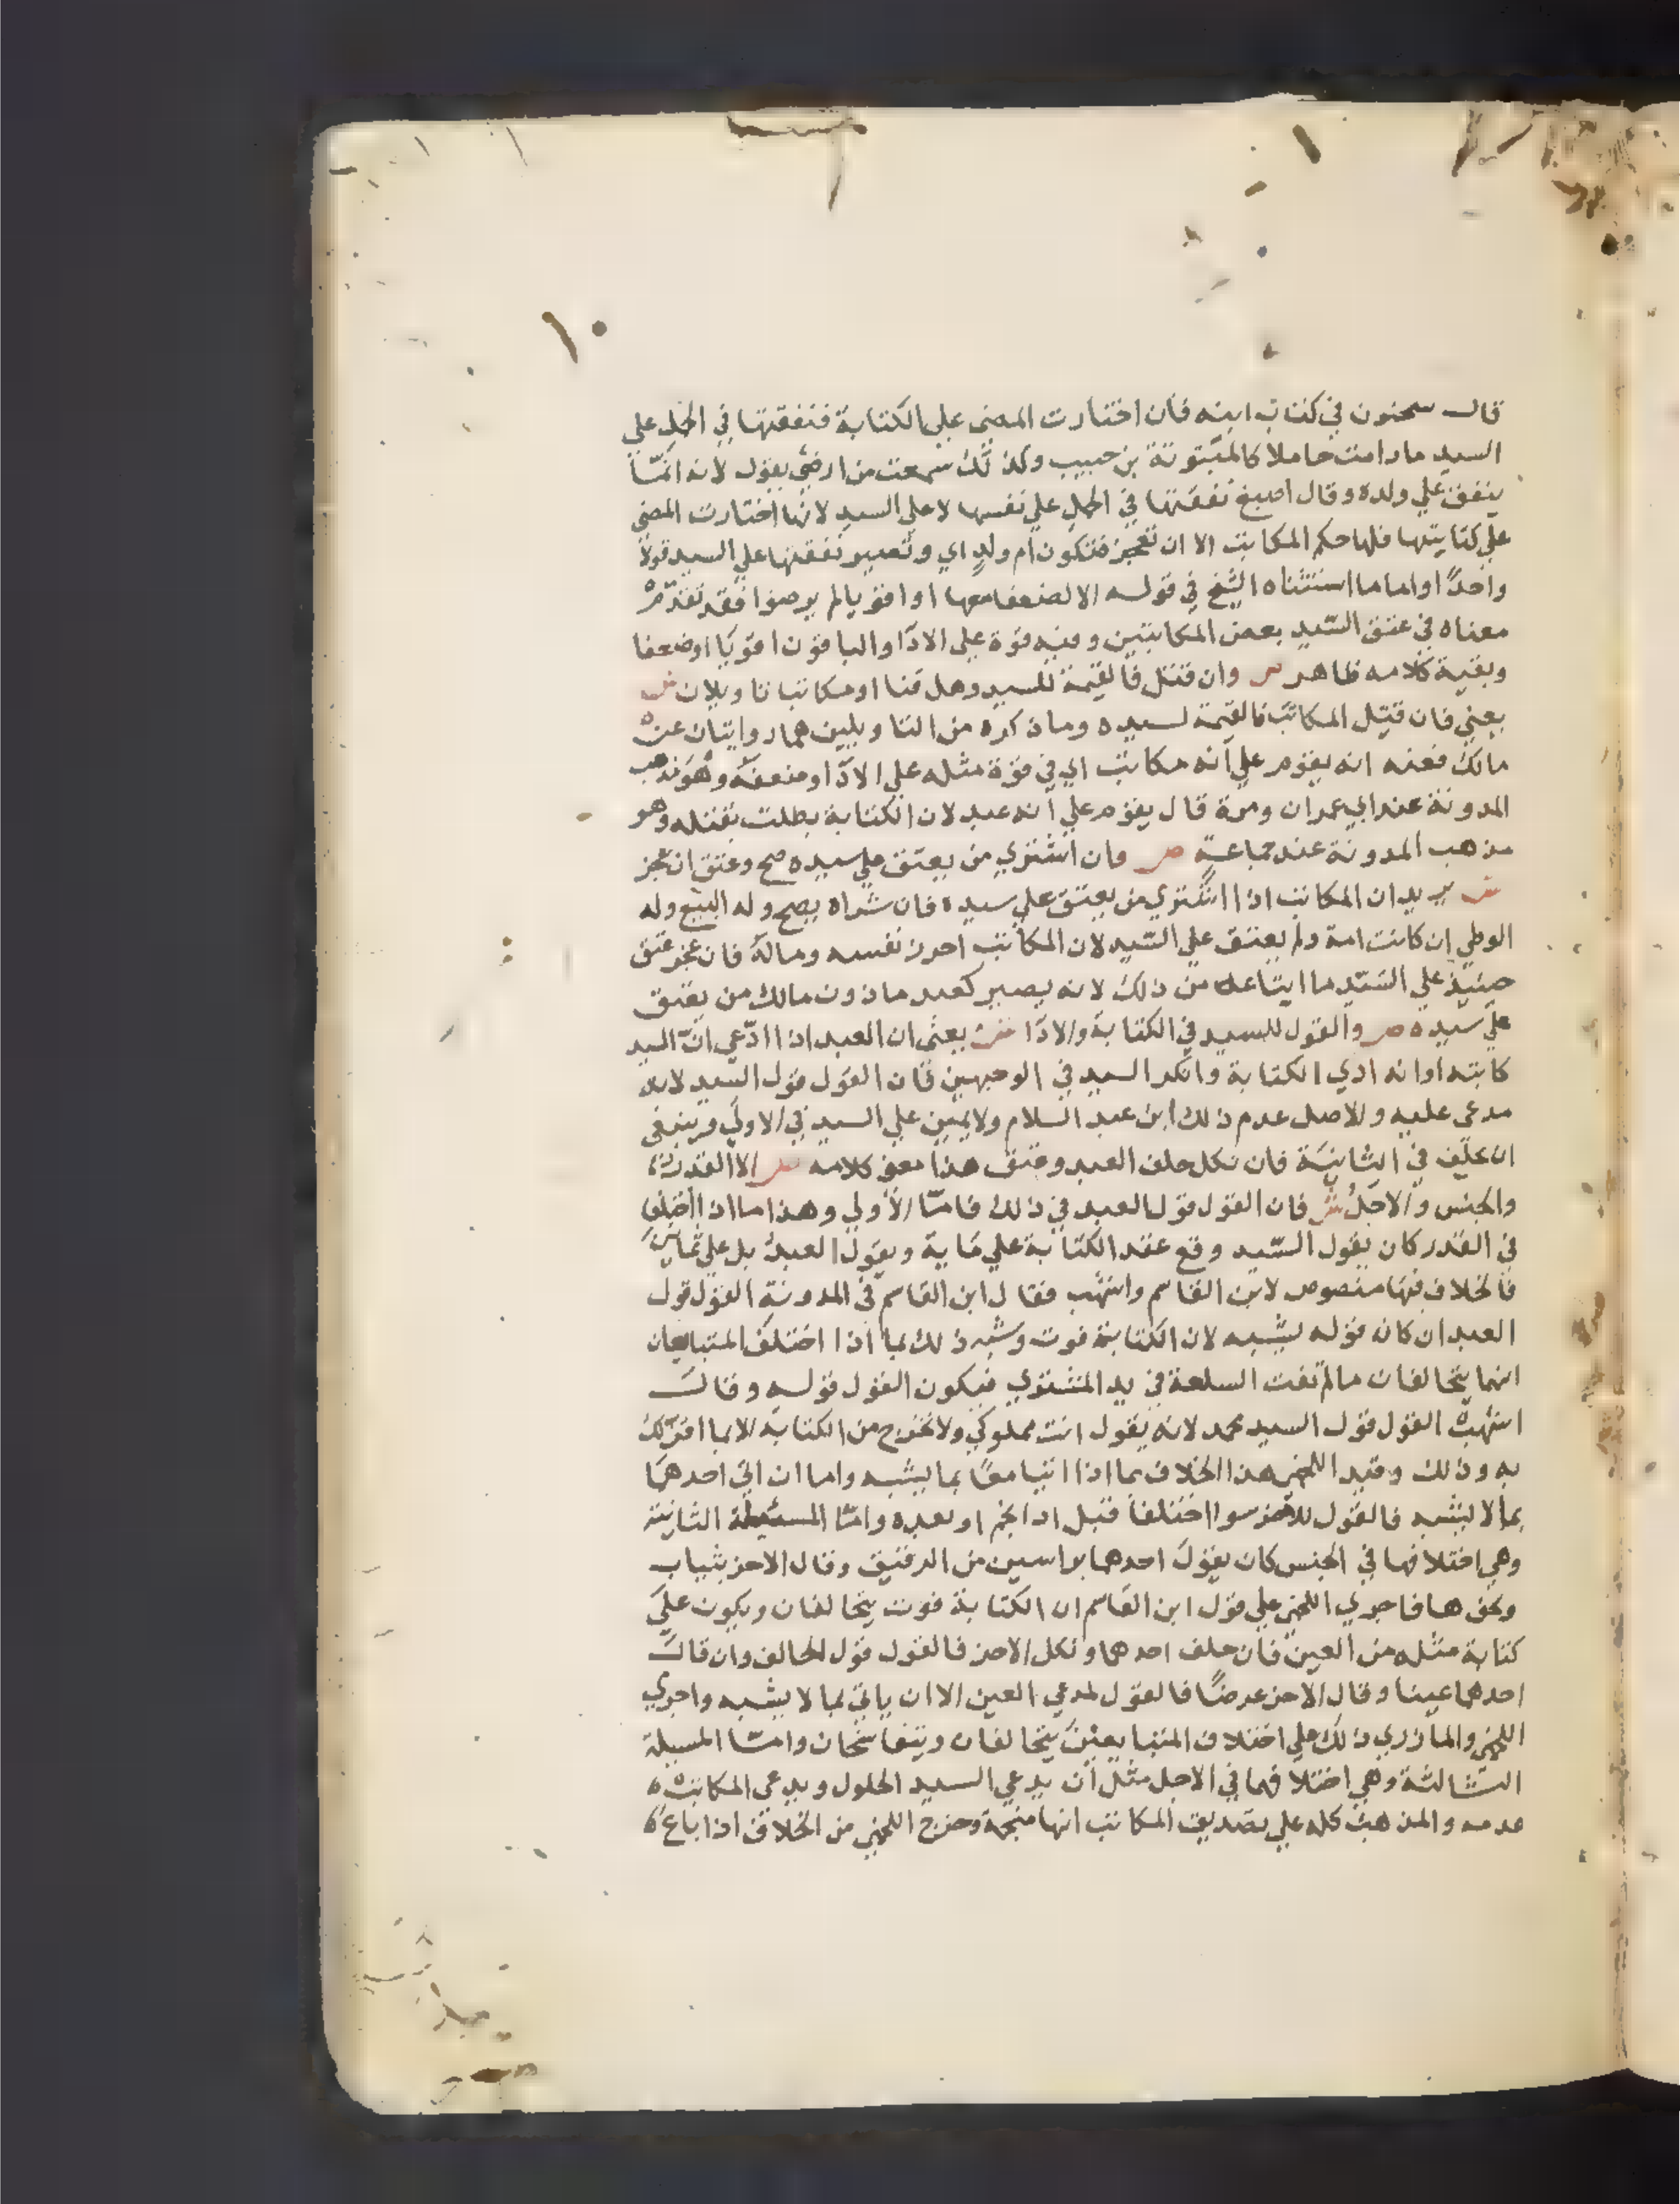 ١٠
قال سحنون في كتاب ابنه فان اختارت المضي على الكتابة فنفقتها في الحمل علي
السيد ما دامت حاملا كالمبتوتة بن حبيب وكذلك سمعت من ارضي يقول لانه انما
ينفق علي ولده وقال اصبغ نفقتها في الحمل علي نفسها لا علي السيد لانها اختارت المضي
علي كتابتها فلها حكم المكاتب الا ان تعجز فتكون ام ولد اي وتصير نفقتها علي السيد قولا
واحدًا او اما ما استثناه الشيخ في قوله الا لضعفا معها او اقويا لم يرضوا فقد تقدم
معناه في عتق السيد بعض المكاتبين وفيه قوة علي الادا والباقون اقويا او ضعفا
وبقية كلامه ظاهر ص وان قتل فالقيمة للسيد وهل قنا او مكاتبا تاويلان ش
يعني فان قتل المكاتب فالقيمة لسيده وما ذكره من التاويلين هما روايتان عن
مالك فعنه انه يقوم علي انه مكاتب اي في قوة مثله علي الادا وضعفه وهو مذهب
المدونة عند ابي عمران ومرة قال يقوم علي انه عبد لان الكتابة بطلت بقتله وهو
مذهب المدونة عند جماعة ص وان اشتري من يعتق علي سيده صح وعتق ان عجز
ش يريد ان المكاتب اذا اشتري من يعتق علي سيده فان شراه يصح وله البيع وله
الوطي ان كانت امة ولم يعتق علي السيد لان المكاتب احرز نفسه وماله فان عجز عتق
حينيذ علي السيد ما ابتاعه من ذلك لانه يصير كعبد ماذون مالك من يعتق
علي سيده ص والقول للسيد في الكتابة والادا ش يعني ان العبد اذا ادعي ان السيد
كاتبه او انه ادي الكتابة وانكر السيد في الوجهين فان القول قول السيد لانه
مدعي عليه والاصل عدم ذلك ابن عبد السلام ولا يمين علي السيد في الاولي وينبغي
ان يحلف في الثانية فان نكل حلف العبد وعتق هذا معنى كلامه ص الا القدر
والجنس والاجل ش فان القول قول العبد في ذلك فاما الاولي وهذا ما اذا اختلفا
في القدر كان يقول السيد وقع عقد الكتابة علي ماية ويقول العبد بل علي ثمانين
فالخلاف فيها منصوص لابن القاسم واشهب فقال ابن القاسم في المدونة القول قول
العبد ان كان قوله يشبه لان الكتابة فوت وشبه ذلك بما اذا اختلف المتبايعان
انهما يتحالفان ما لم تفت السلعة في يد المشتري فيكون القول قوله وقال
اشهب القول قول السيد محمد لانه يقول انت مملوكي ولا تخرج من الكتابة الا بما اقر لك
به وذلك وقيد اللخمي هذا الخلاف بما اذا اتيا معًا بما يشبه واما ان اتي احدهما
بما لا يشبه فالقول للاخر سوا اختلفا قبل ادا نجم او بعده واما المسئلة الثانية
وهي اختلافهما في الجنس كان يقول احدهما براسين من الرقيق وقال الاخر بثياب
ونحوها فاجري اللخمي علي قول ابن القاسم ان الكتابة فوت يتحالفان ويكون علي
كتابة مثله من العين فان حلف احدهما ونكل الاخر فالقول قول الحالف وان قال
احدهما عينا وقال الاخر عرضًا فالقول لمدعي العين الا ان ياتي بما لا يشبه واجري
اللخمي والمازري ذلك علي اختلاف المتبايعين يتحالفان ويتفاسخان واما المسيلة
الثالثة وهي اختلافهما في الاجل مثل ان يدعي السيد الحلول ويدعي المكاتب
عدمه والمذهب كله علي تصديق المكاتب انها منجمة وخرج اللخمي من الخلاف اذا باع